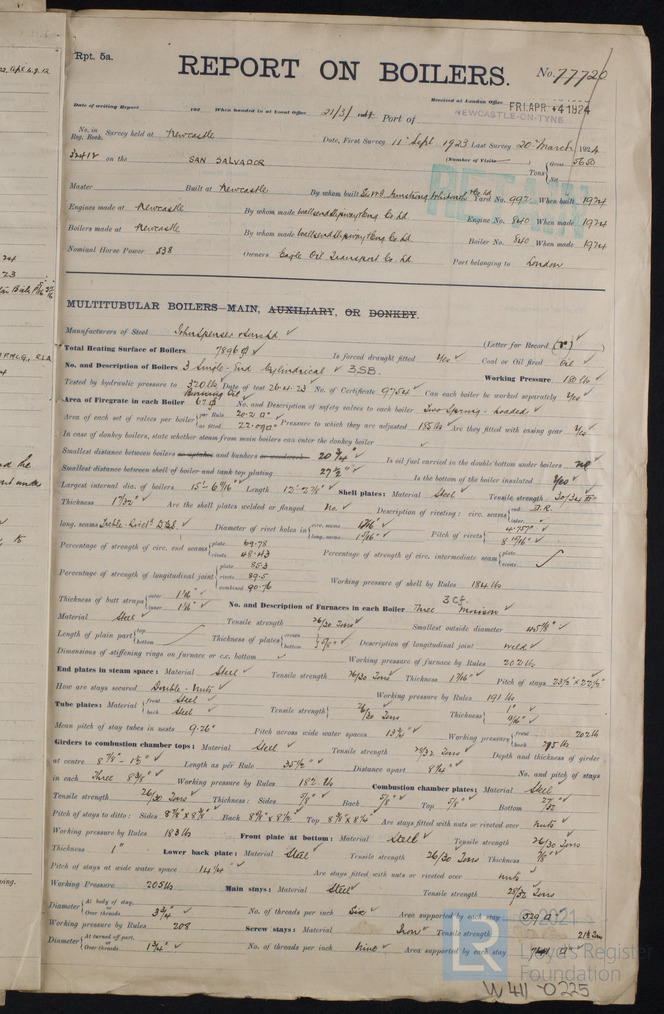 Rpt. 5a.
REPORT ON BOILERS.
No. 77720
Date of writing Report 192 When handed in at Local Office 21/3/1924 Received at London Office FRI. APR. 4 1924
Port of NEWCASTLE-ON-TYNE
No. in Reg. Book. Survey held at Newcastle Date, First Survey 11 Sept 1923 Last Survey 20 March 1924
on the SAN SALVADOR (Number of Visits ) Tons Gross 5650 Net
Master Built at Newcastle By whom built Sir W G Armstrong Whitworth & Co Ld Yard No. 992 When built 1924
Engines made at Newcastle By whom made Wallsend Slipway & Eng Co Ld Engine No. 840 When made 1924
Boilers made at Newcastle By whom made Wallsend Slipway & Eng Co Ld Boiler No. 840 When made 1924
Nominal Horse Power 538 Owners Eagle Oil Transport Co Ld Port belonging to London
MULTITUBULAR BOILERS—MAIN, AUXILIARY, OR DONKEY.
Manufacturers of Steel John Spencer & Sons Ld (Letter for Record (r))
Total Heating Surface of Boilers 7896 Is forced draught fitted Yes Coal or Oil fired Oil
No. and Description of Boilers 3 Single-End Cylindrical 3 S.B. Working Pressure 180 lb
Tested by hydraulic pressure to 320 lb Date of test 26.4.23 No. of Certificate 9754 Can each boiler be worked separately Yes
Burning Oil
Area of Firegrate in each Boiler No. and Description of safety valves to each boiler Two Spring-loaded
Area of each set of valves per boiler per Rule 20.21 as fitted 22.090 Pressure to which they are adjusted 185 lb Are they fitted with easing gear Yes
In case of donkey boilers, state whether steam from main boilers can enter the donkey boiler
Smallest distance between boilers or uptakes and bunkers or woodwork 20 3/4" Is oil fuel carried in the double bottom under boilers no
Smallest distance between shell of boiler and tank top plating 27 1/2" Is the bottom of the boiler insulated Yes
Largest internal dia. of boilers 15'-6 9/16" Length 12'-2 7/8" Shell plates: Material Steel Tensile strength 30/34
Thickness 1 7/32" Are the shell plates welded or flanged No Description of riveting: circ. seams end D.R. inter.
long. seams Treble-Rivtd D.B.S. Diameter of rivet holes in circ. seams long. seams Pitch of rivets 4.757"
Percentage of strength of circ. end seams plate 69.78 rivets 48.43 Percentage of strength of circ. intermediate seam plate rivets
Percentage of strength of longitudinal joint plate 85.3 rivets 89.5 combined 90.76 Working pressure of shell by Rules 184 lb
Thickness of butt straps outer 1 1/16" inner 1 1/16" No. and Description of Furnaces in each Boiler Three 3 C.F. Morison
Material Steel Tensile strength 26/30 Tons Smallest outside diameter 45 7/8"
Length of plain part top bottom Thickness of plates crown bottom 5/8" Description of longitudinal joint weld
Dimensions of stiffening rings on furnace or c.c. bottom Working pressure of furnace by Rules 202 lb
End plates in steam space: Material Steel Tensile strength 26/30 Tons Thickness 1 7/16" Pitch of stays 23 1/2" x 22 1/2"
How are stays secured Double-Nuts Working pressure by Rules 191 lb
Tube plates: Material front Steel back Steel Tensile strength 26/30 Tons Thickness 1" 11/16"
Mean pitch of stay tubes in nests 9.26" Pitch across wide water spaces 13 3/4" Working pressure front 202 lb back 205 lb
Girders to combustion chamber tops: Material Steel Tensile strength 28/32 Tons Depth and thickness of girder
at centre 8 7/8" - 1 5/8" Length as per Rule 35 1/2" Distance apart 8 1/4" No. and pitch of stays
in each Three 8 3/8" Working pressure by Rules 182 lb Combustion chamber plates: Material Steel
Tensile strength 26/30 Tons Thickness: Sides 5/8" Back 5/8" Top 5/8" Bottom 27/32"
Pitch of stays to ditto: Sides Back Top Are stays fitted with nuts or riveted over nuts
Working pressure by Rules 183 lb Front plate at bottom: Material Steel Tensile strength 26/30 Tons
Thickness 1" Lower back plate: Material Steel Tensile strength 26/30 Tons Thickness 7/8"
Pitch of stays at wide water space 14 1/4" Are stays fitted with nuts or riveted over nuts
Working Pressure 205 lb Main stays: Material Steel Tensile strength 28/32 Tons
Diameter At body of stay, or Over threads 3 3/4" No. of threads per inch Six Area supported by each stay 529
Working pressure by Rules 208 Screw stays: Material Iron Tensile strength 21 1/2 Tons
Diameter At turned off part, or Over threads 1 3/4" No. of threads per inch Nine Area supported by each stay
© 2021
LR
Lloyd's Register
Foundation
W411-0225